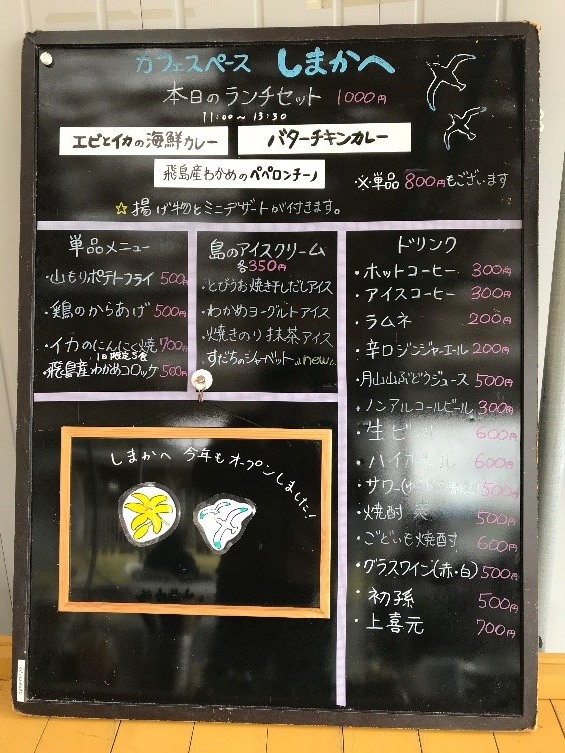 カフェスペース しまかへ
本日のランチセット 1000円
11:00〜13:30
エビとイカの海鮮カレー
バターチキンカレー
飛島産わかめのペペロンチーノ
※単品 800円もございます
☆揚げ物とミニデザートが付きます。
単品メニュー
・山もりポテトフライ 500円
・鶏のからあげ 500円
・イカのにんにく焼 700円
1日限定5食
・飛島産わかめコロッケ 500円
島のアイスクリーム
各350円
・とびうお焼き干しだしアイス
・わかめヨーグルトアイス
・焼きのり抹茶アイス
・すだちのシャーベット new
ドリンク
・ホットコーヒー 300円
・アイスコーヒー 300円
・ラムネ 200円
・辛口ジンジャーエール 200円
・月山山ぶどうジュース 500円
・ノンアルコールビール 300円
・生ビール 600円
・ハイボール 600円
・サワー 500円
・焼酎 麦 500円
・ごどいも焼酎 600円
・グラスワイン(赤・白) 500円
・初孫 500円
・上喜元 700円
しまかへ 今年もオープンしました!